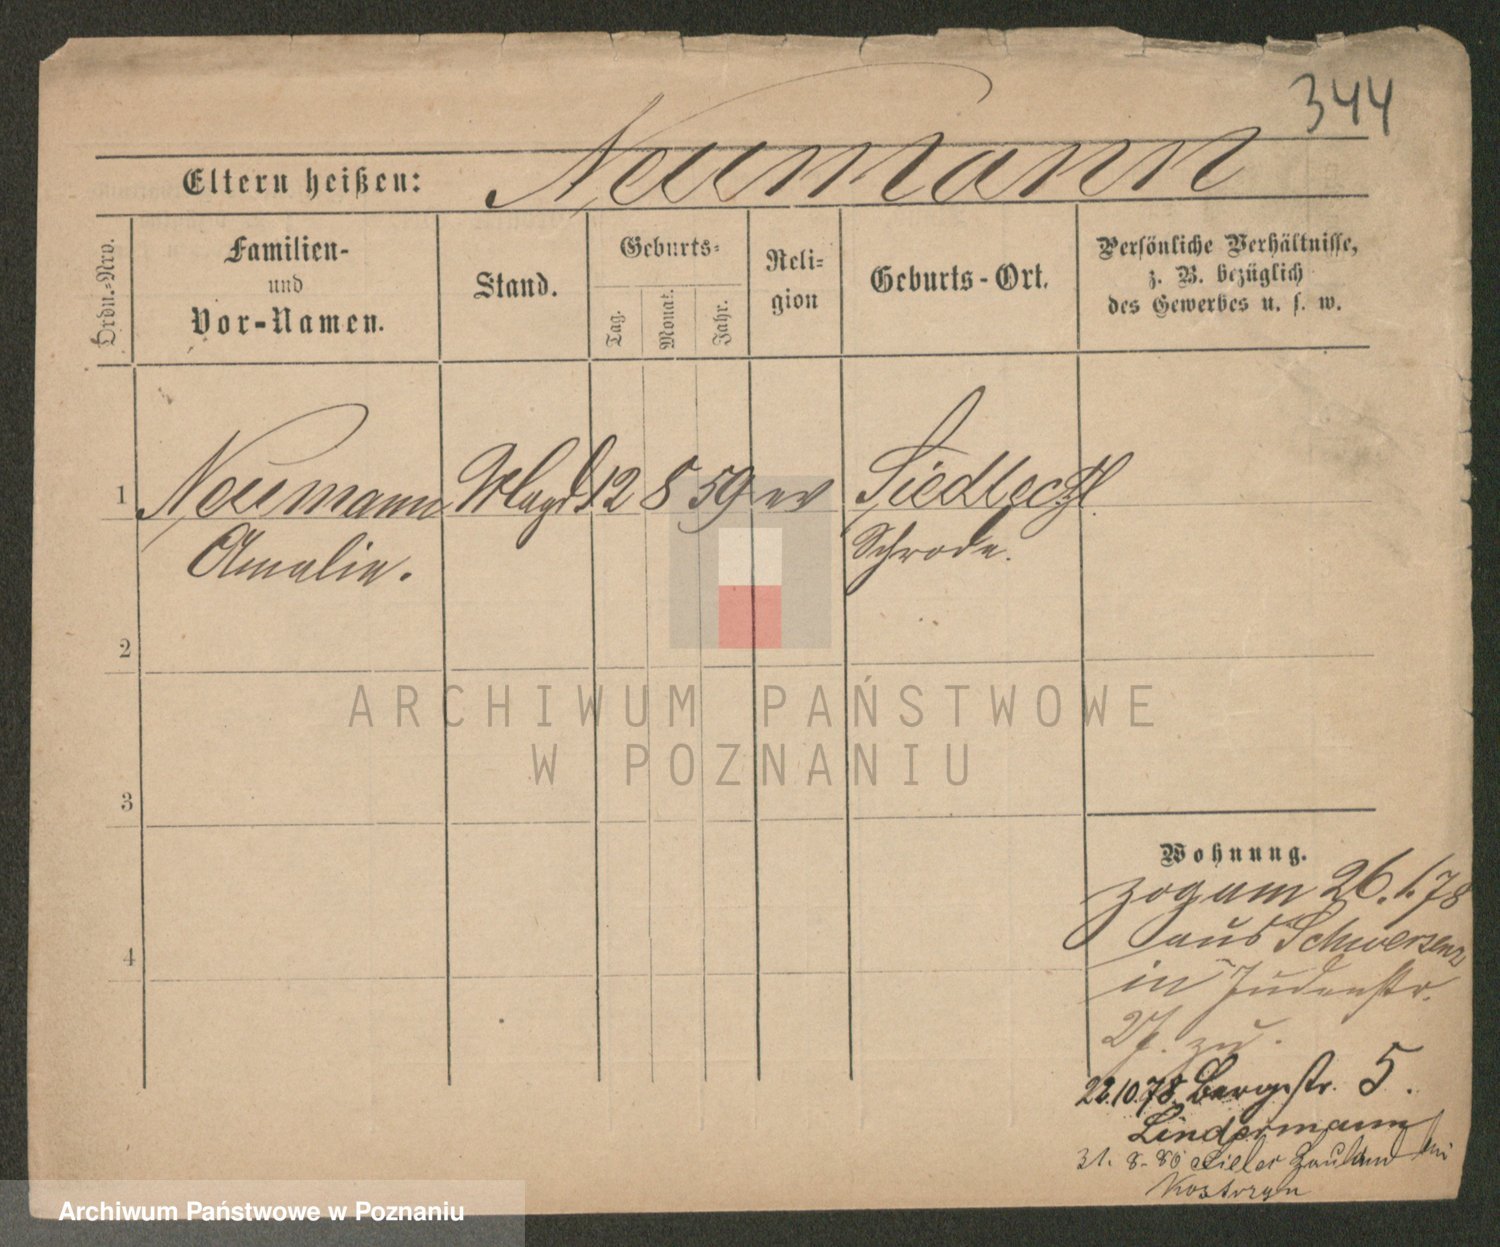 344
Eltern heißen: Neumann
Ordn.-Nro.
Familien-
und
Vor-Namen.
Stand.
Geburts-
Tag.
Monat.
Jahr.
Reli-
gion
Geburts-Ort.
Persönliche Verhältnisse,
z. B. bezüglich
des Gewerbes u. s. w.
1 Neumann Magd 12 8 59 ev Siedlec
Amalie. Schroda.
2
ARCHIWUM PAŃSTWOWE
W POZNANIU
3
Wohnung.
zog am 26.1.78
aus Schwersenz
in Judenstr.
27. zu.
4
22.10.78. Bergstr. 5.
Lindermann
31. 8. 80
Kostrzyn
Archiwum Państwowe w Poznaniu